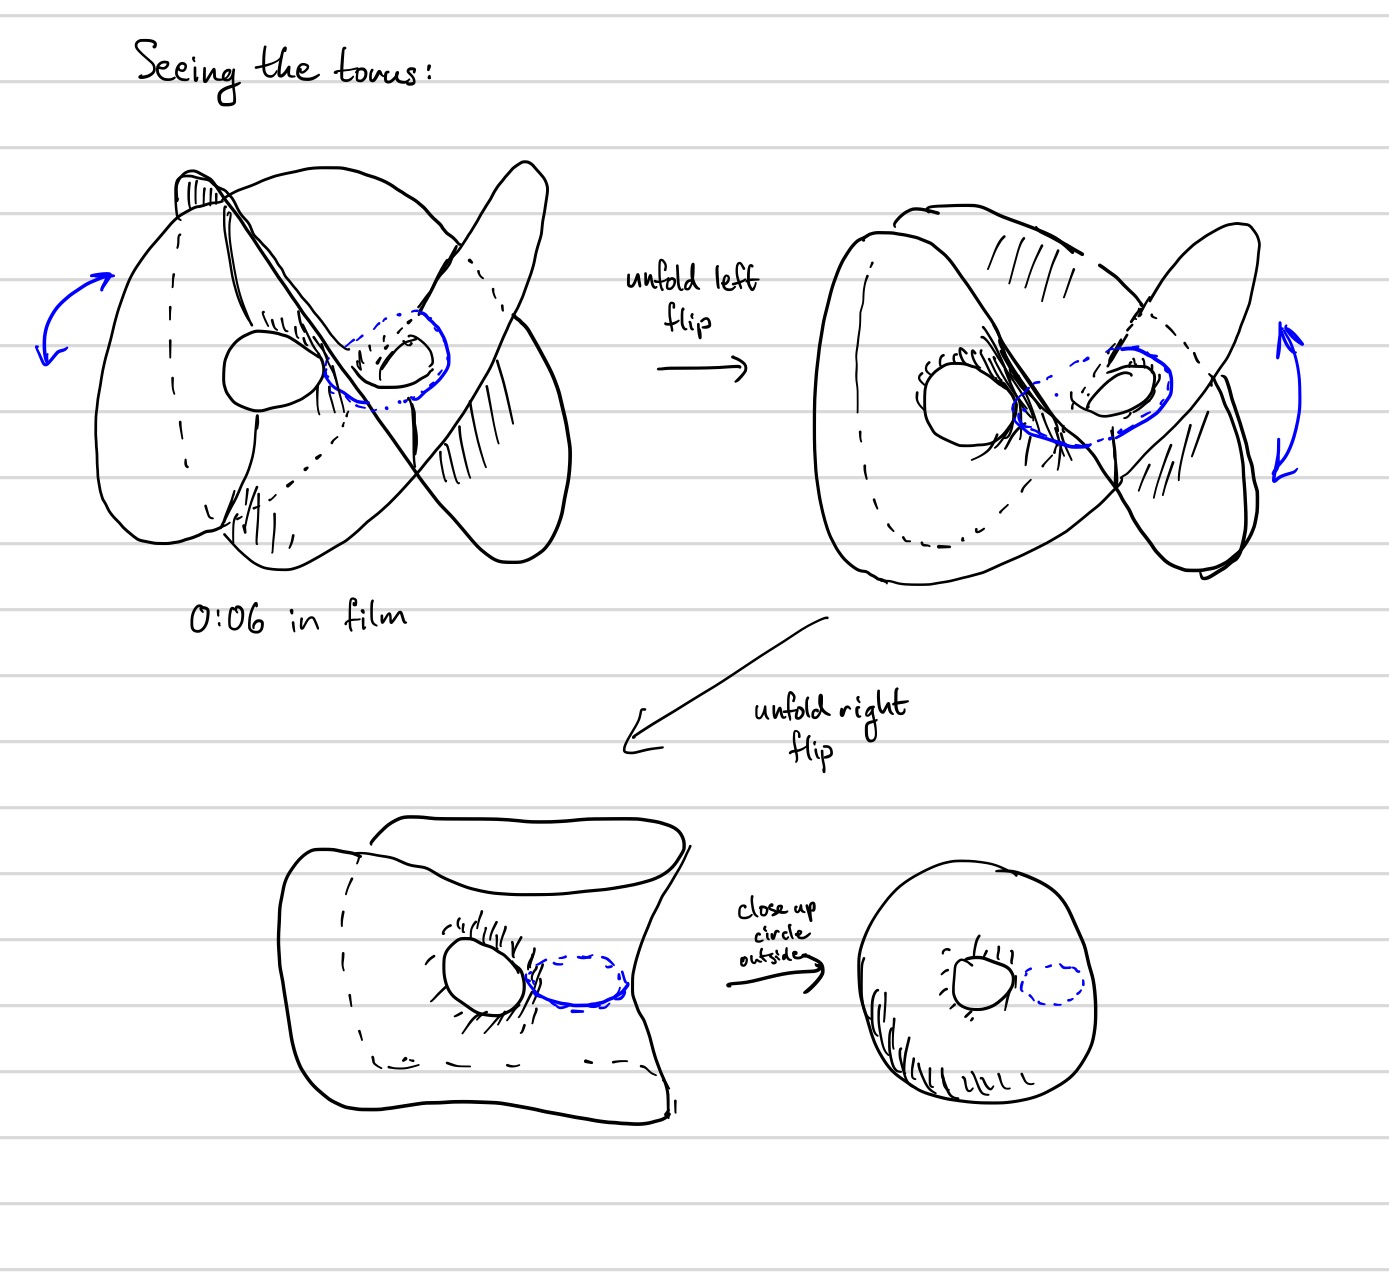 Seeing the torus:
unfold left
flip
0:06 in film
unfold right
flip
close up
circle
outside